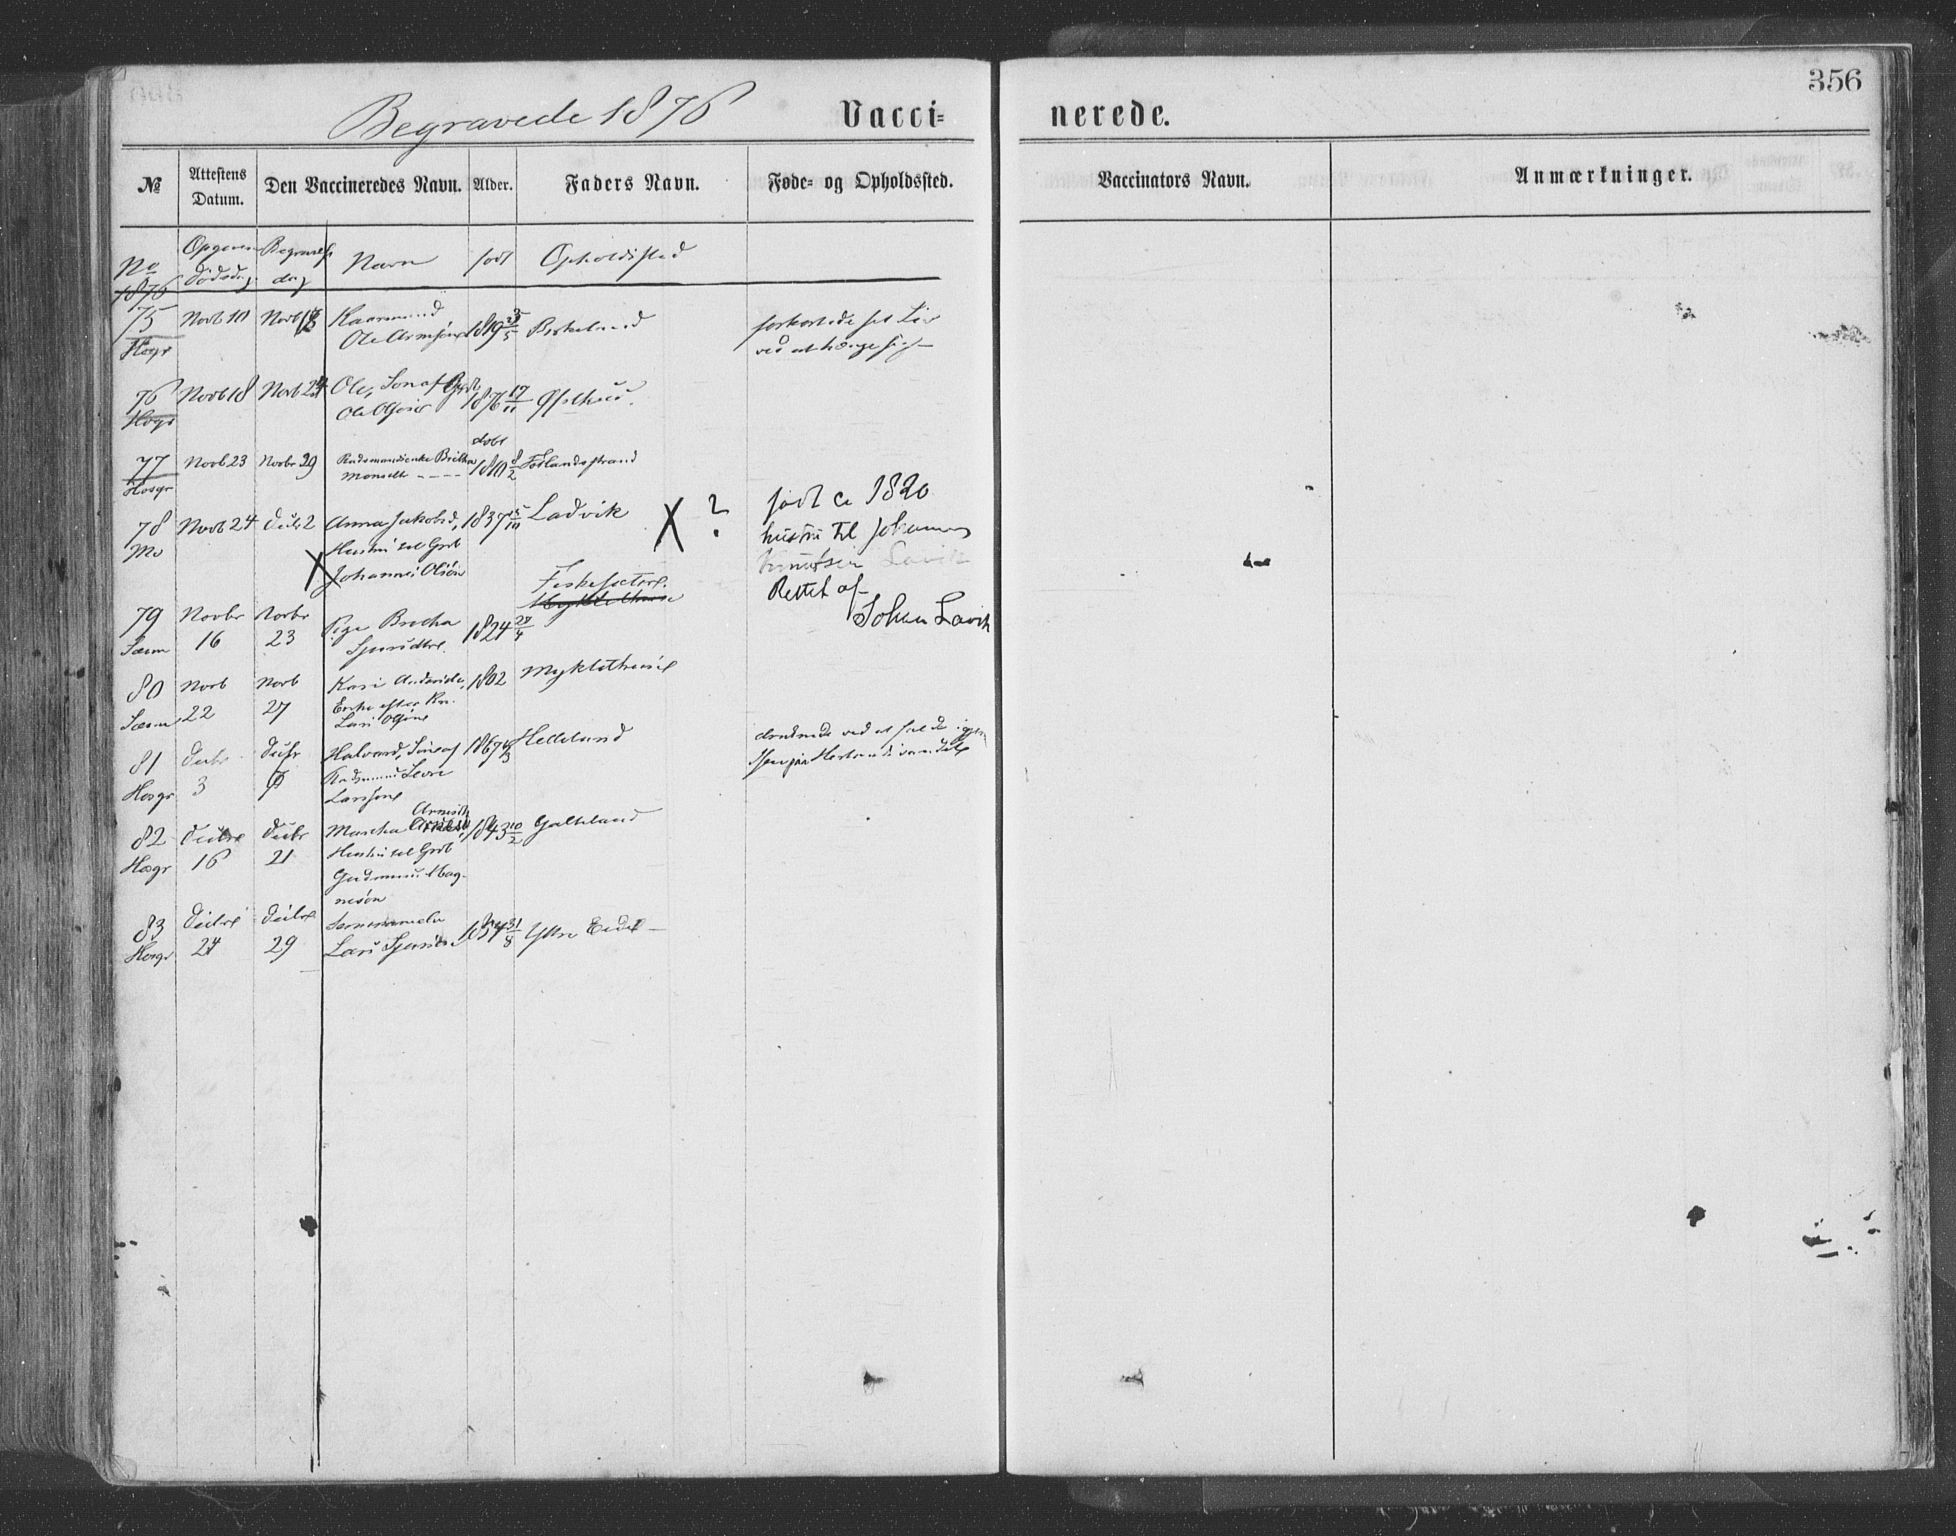 356
Begravede 1876
Vacci=
nerede.
№
Attestens Datum.
Den Vaccineredes Navn.
Alder.
Faders Navn.
Føde- og Opholdssted.
Vaccinators Navn.
Anmærkninger.
No
1876
Opgiven
dødsdag
Begravels
dag
Navn
født
Opholdssted
75
Hosgr
Novb 10
Novb 18
Kaarmand
Ole Arnesøn
1819 23/5
Birkeland
forkortede sit Liv
ved at hænge sig
76
Hosgr
Novb 18
Novb 24
Ole, Søn af
Ole Olsen
1876 17/11
77
Hosgr
Novb 23
Novbr 29
Britha
Monsdtr
døbt
1810 8/2
Fotlandsstrand
78
Mo
Novb 24
Decbr 2
Anna Jakobsd,
Hustru til Grb
X Johannes Olsøn
1837 15/10
Ladvik
X ?
født ca 1820
hustru til Johannes
Knutsen Lavik
Rettet af
Johan Lavik
79
Sæm
Novbr
16
Novbr
23
Pige Brotha
Sjursdtr.
1824 24/4
Myklethun
80
Sæm
Novb
22
Novb
27
Kari Andersdtr,
Enke efter
Lars Olsøn
1802
Myklethun
81
Hosgr
Decbr
3
Decbr
Halvard, Søn af
Larssøn
1867
Helleland
druknede ved at falde igjen
Isen paa
82
Hosgr
Decbr
16
Decbr
21
Martha
Arnesdtr
Hustru til Grb
Gudmund Mag-
nesøn
1843 10/2
Galteland
83
Hosgr
Decbr
24
Decbr
29
Lars Sjursøn
1854 31/8
Yttre Eide